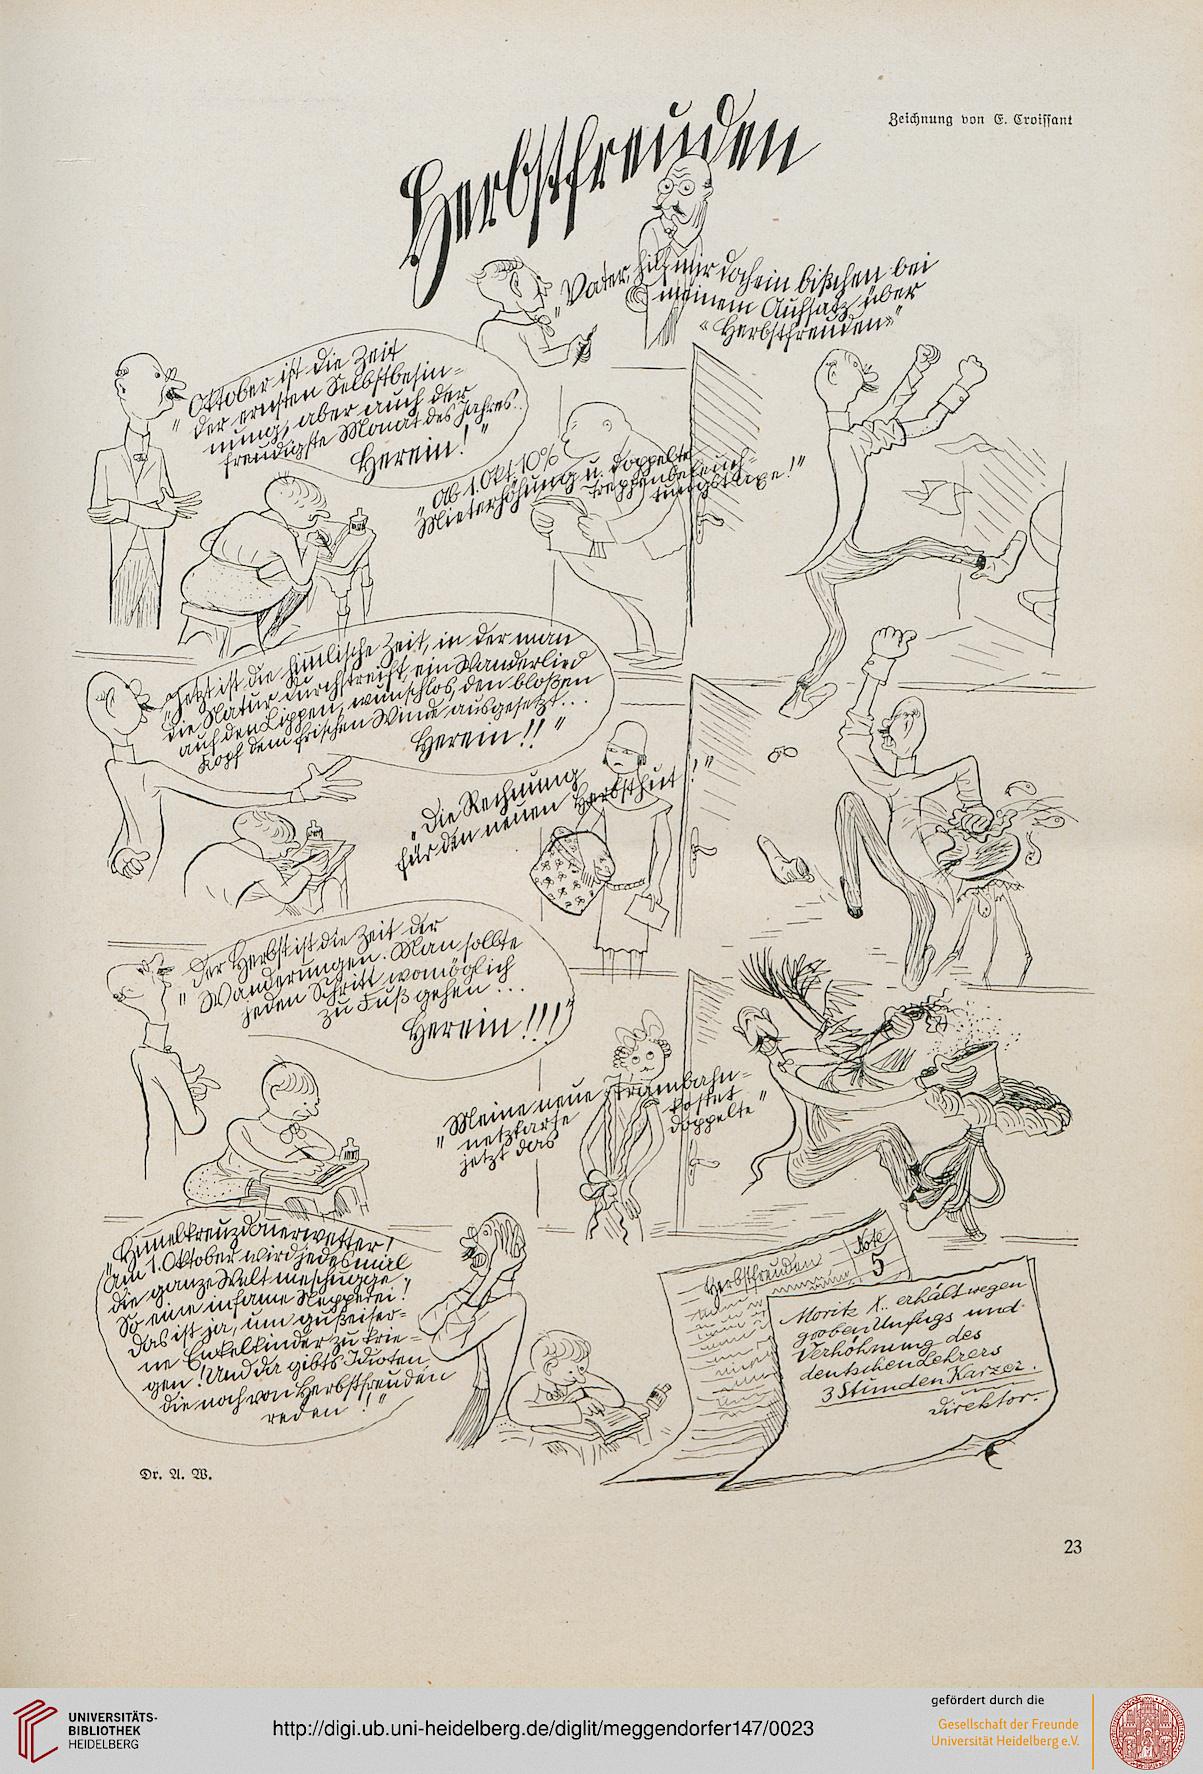 Zeichnung von E. Croissant
Herbstfreuden
"Vater, hilf mir doch ein bißchen bei
meinem Aufsatz über
«Herbstfreuden»"
"Oktober ist die Zeit
der ernsten Selbstbesin-
nung, aber auch der
freudigste Monat des Jahres..
Herein!"
"Ab 1. Okt. 10%
Mieterhöhung u. doppelte
Treppenbeleuch-
tungstaxe!"
"Jetzt ist die himmlische Zeit, in der man
die Natur durchstreift, ein Wanderlied
auf den Lippen, wunschlos, den bloßen
Kopf dem frischen Winde ausgesetzt...
Herein!!"
"Die Rechnung
für den neuen Herbsthut!"
"Der Herbst ist die Zeit der
Wanderungen. Man sollte
jeden Schritt womöglich
zu Fuß gehen...
Herein!!!"
"Meine neue Trambahn-
netzkarte kostet
jetzt das doppelte"
"Himmelkreuzdonnerwetter!
Am 1. Oktober wird jedesmal
die ganze Welt meschugge!
So eine infame Nepperei!
Das ist ja, um gußeiser-
ne Enkelkinder zu krie-
gen! Und da gibts Idioten,
die noch von Herbstfreuden
reden!"
Herbstfreuden
Note
5
Moritz X. erhält wegen
groben Unfugs und
Verhöhnung des
deutschen Lehrers
3 Stunden Karzer.
Direktor.
Dr. A. W.
23
UNIVERSITÄTS-
BIBLIOTHEK
HEIDELBERG
http://digi.ub.uni-heidelberg.de/diglit/meggendorfer147/0023
gefördert durch die
Gesellschaft der Freunde
Universität Heidelberg e.V.